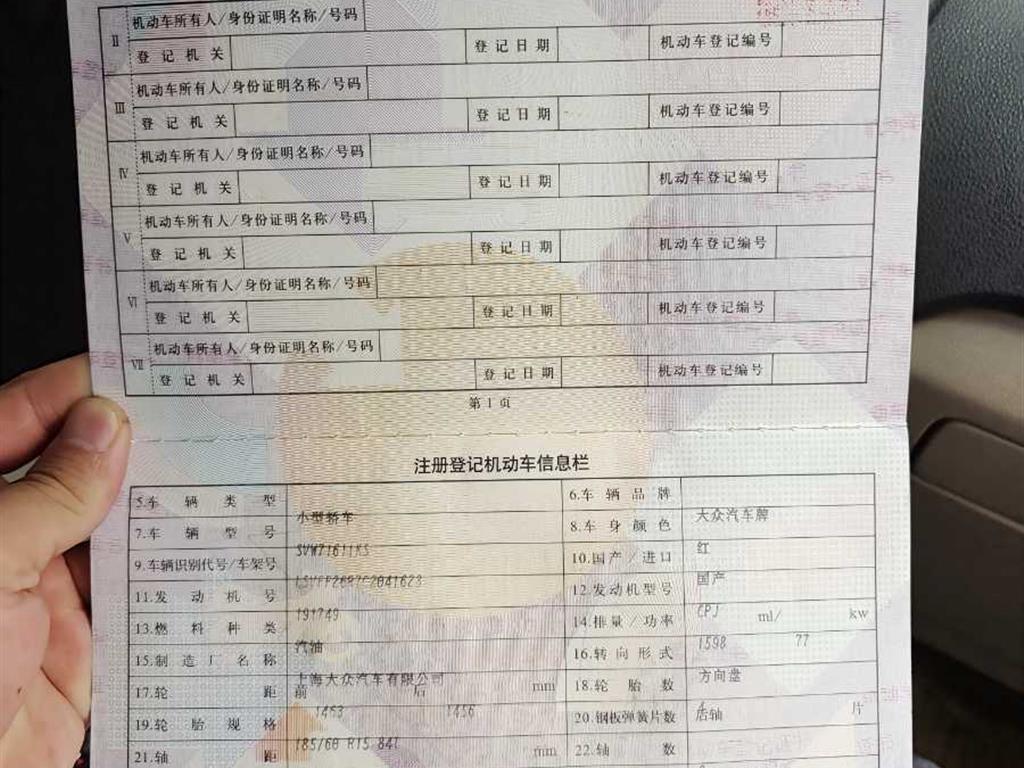 Ⅱ 机动车所有人/身份证明名称/号码
登记机关 登记日期 机动车登记编号
Ⅲ 机动车所有人/身份证明名称/号码
登记机关 登记日期 机动车登记编号
Ⅳ 机动车所有人/身份证明名称/号码
登记机关 登记日期 机动车登记编号
Ⅴ 机动车所有人/身份证明名称/号码
登记机关 登记日期 机动车登记编号
Ⅵ 机动车所有人/身份证明名称/号码
登记机关 登记日期 机动车登记编号
Ⅶ 机动车所有人/身份证明名称/号码
登记机关 登记日期 机动车登记编号
第1页
注册登记机动车信息栏
5.车辆类型 小型轿车 6.车辆品牌 大众汽车牌
7.车辆型号 8.车身颜色 红
9.车辆识别代号/车架号 10.国产/进口 国产
11.发动机号 191749 12.发动机型号 CPJ
13.燃料种类 汽油 14.排量/功率 1598 ml/ 77 kw
15.制造厂名称 上海大众汽车有限公司 16.转向形式 方向盘
17.轮距 前 1463 后 1456 mm 18.轮胎数 4
19.轮胎规格 185/60 R15 84T 20.钢板弹簧片数 后轴 片
21.轴距 mm 22.轴数